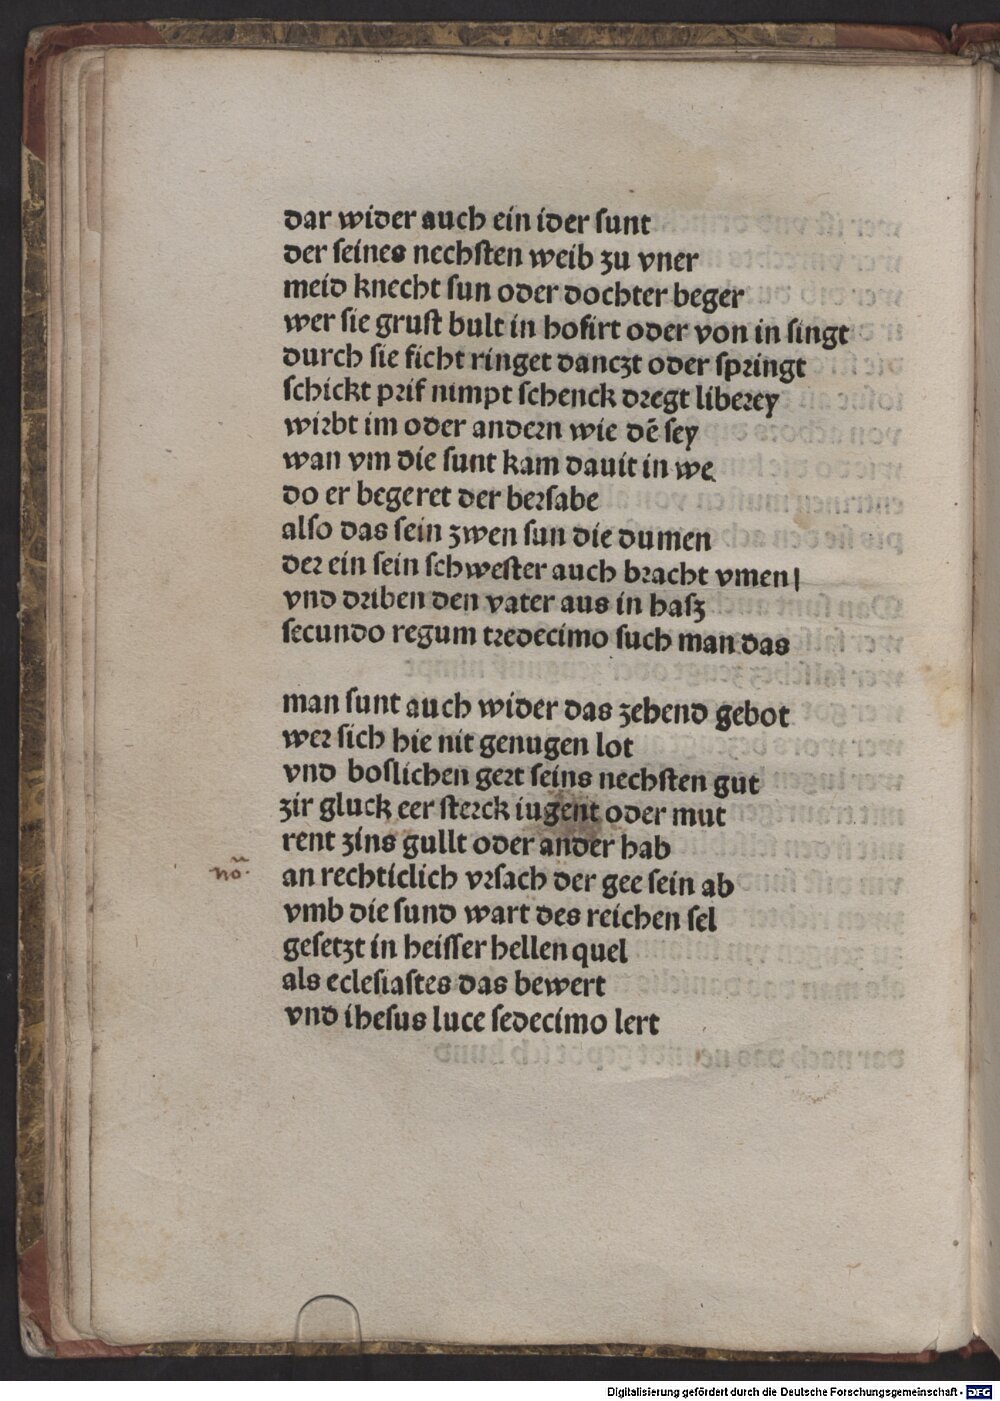 dar wider auch ein ider sunt
der seines nechsten weib zu vner
meid knecht sun oder dochter beger
wer sie grust bult in hofirt oder von in singt
durch sie ficht ringet danczt oder springt
schickt prif nimpt schenck dregt liberey
wirbt im oder andern wie dē sey
wan vm die sunt kam dauit in we
do er begeret der bersabe
also das sein zwen sun die dumen
der ein sein schwester auch bracht vmen|
vnd driben den vater aus in hasz
secundo regum tredecimo such man das
man sunt auch wider das zehend gebot
wer sich hie nit genugen lot
vnd boslichen gert seins nechsten gut
zir gluck eer sterck iugent oder mut
rent zins gullt oder ander hab
nō. an rechticlich vrsach der gee sein ab
vmb die sund wart des reichen sel
gesetzt in heisser hellen quel
als eclesiastes das bewert
vnd ihesus luce sedecimo lert
Digitalisierung gefördert durch die Deutsche Forschungsgemeinschaft - DFG